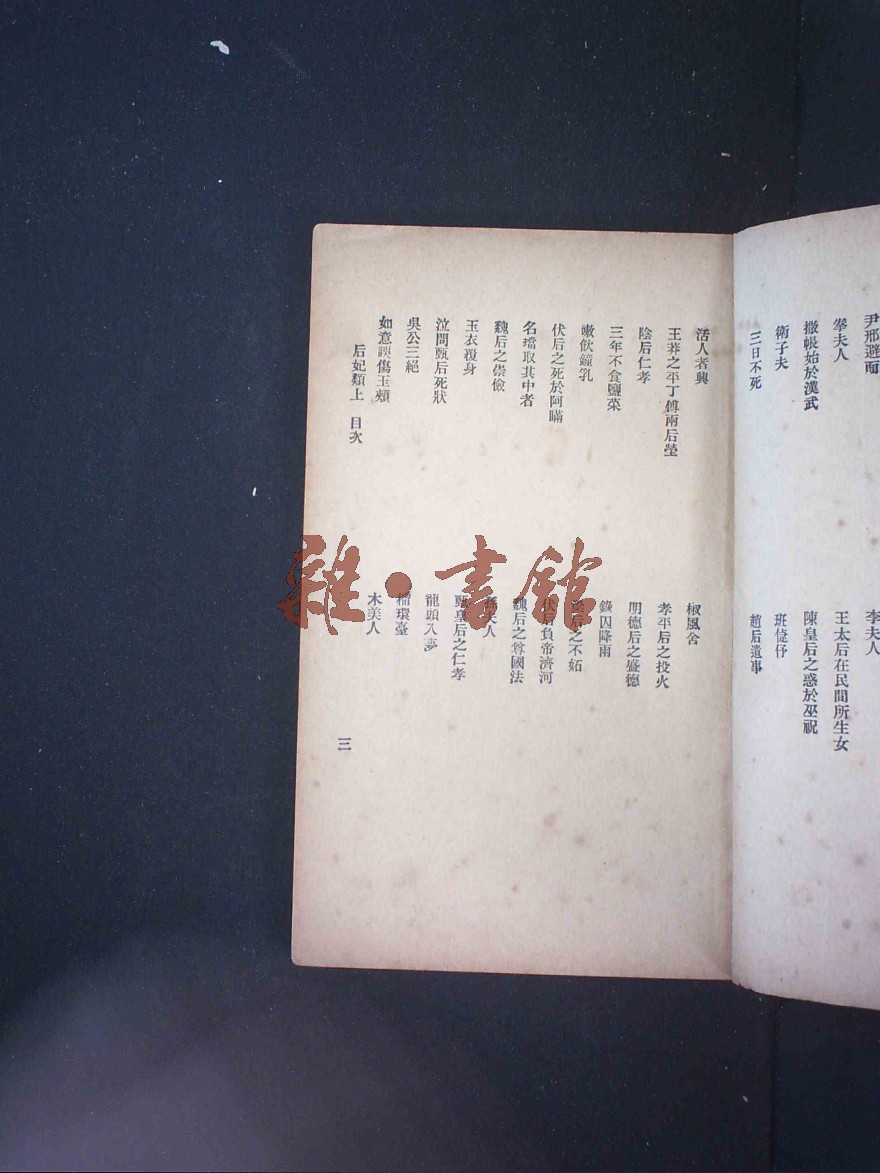 尹邢避面
李夫人
拳夫人
王太后在民間所生女
撒帳始於漢武
陳皇后之惑於巫祝
衛子夫
班倢伃
三日不死
趙后遺事
活人者興
椒風舍
王莽之平丁傅兩后塋
孝平后之投火
陰后仁孝
明德后之盛德
三年不食鹽菜
錄囚降雨
嗽飲鐘乳
梁后之不妬
伏后之死於阿瞞
伏后負帝濟河
名璫取其中者
魏后之尊國法
魏后之崇儉
夫人
玉衣覆身
甄皇后之仁孝
泣問甄后死狀
龍頭入夢
吳公三絕
榴環臺
如意誤傷玉頰
木美人
后妃類上 目次
三
雜·書館